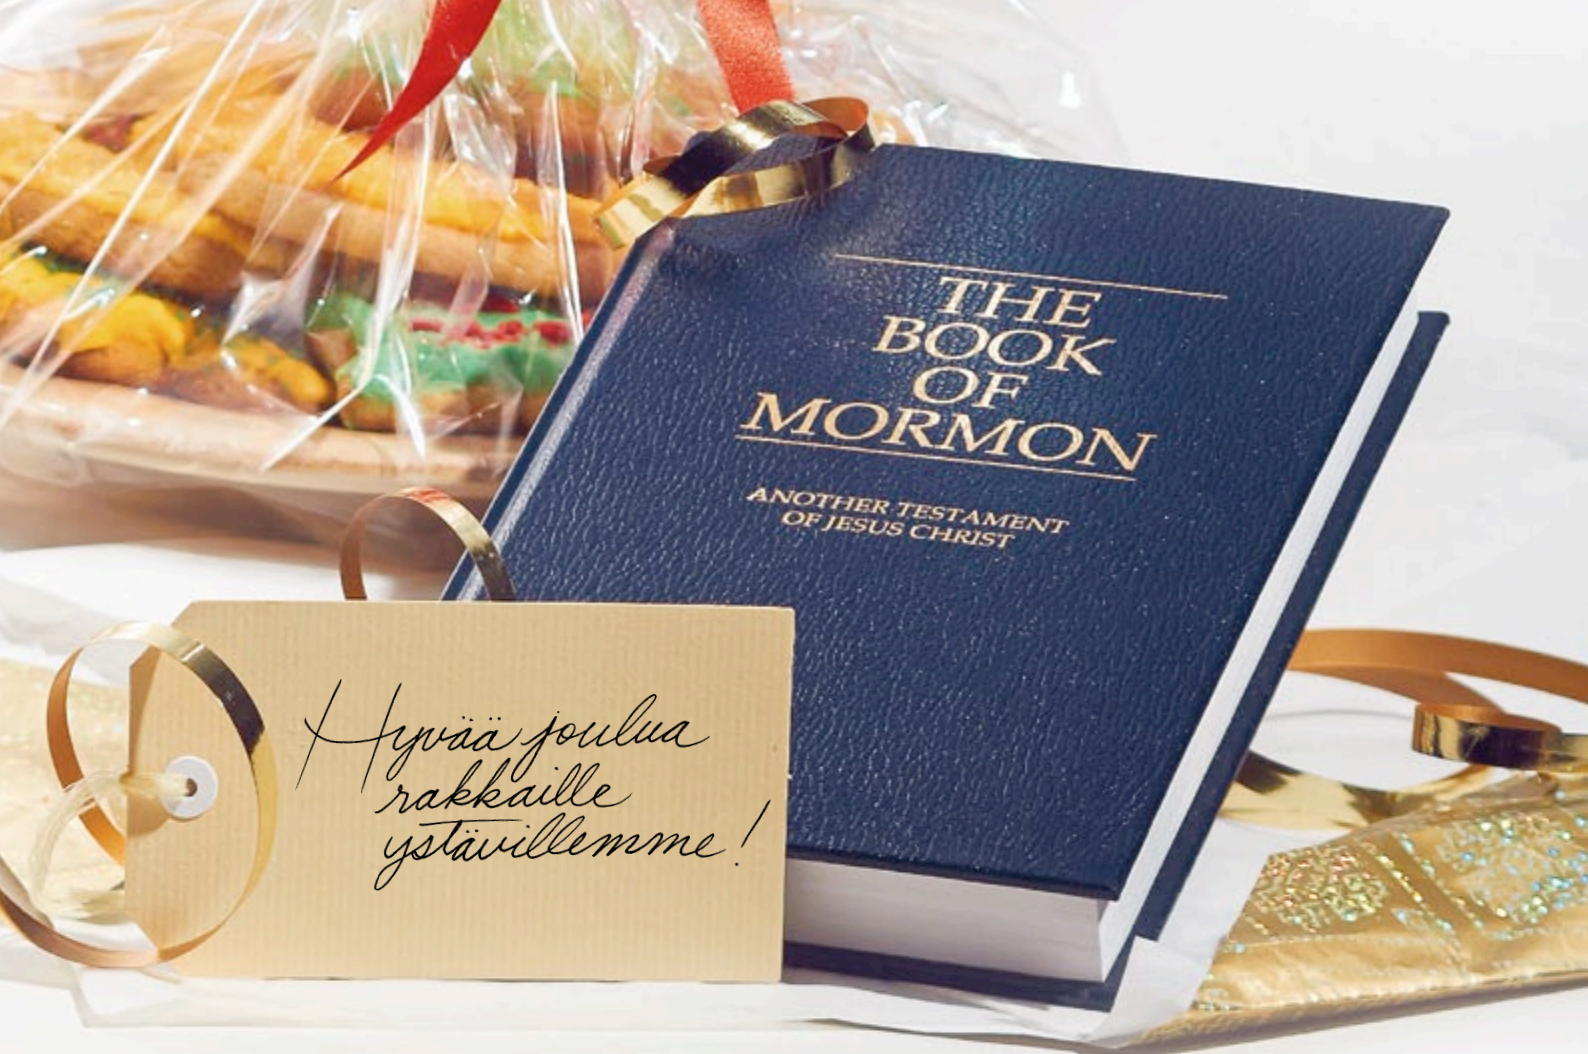 THE
BOOK
OF
MORMON
ANOTHER TESTAMENT
OF JESUS CHRIST
Hyvää joulua
rakkaille
ystävillemme!